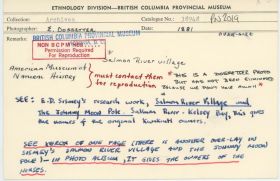 ETHNOLOGY DIVISION—BRITISH COLUMBIA PROVINCIAL MUSEUM
Collection Archives Catalogue No.
Photographer E. Dossetter Date 1881
Remarks BRITISH COLUMBIA PROVINCIAL MUSEUM
NON BCPM NEG
Permission Required
For Reproduction
Salmon River village
American Museum of
Natural History
must contact them for reproduction
THIS IS A DOSSETTER PHOTO
BUT AND HAS NOT BEEN
BECAUSE WE DON'T OWN
SEE: E.D. SISMEY'S research work, Salmon River Village and
the Johnny Moon Pole. Salmon River - Kelsey Bay, this gives
the names of the original Kwakiutl owners.
SEE VERSON OF THIS PAGE (THERE IS ANOTHER OVER-LAY IN
SISMEY'S SALMON RIVER VILLAGE AND THE JOHNNY MOON
POLE) - IN PHOTO ALBUM, IT GIVES THE OWNERS OF THE
HOUSES.